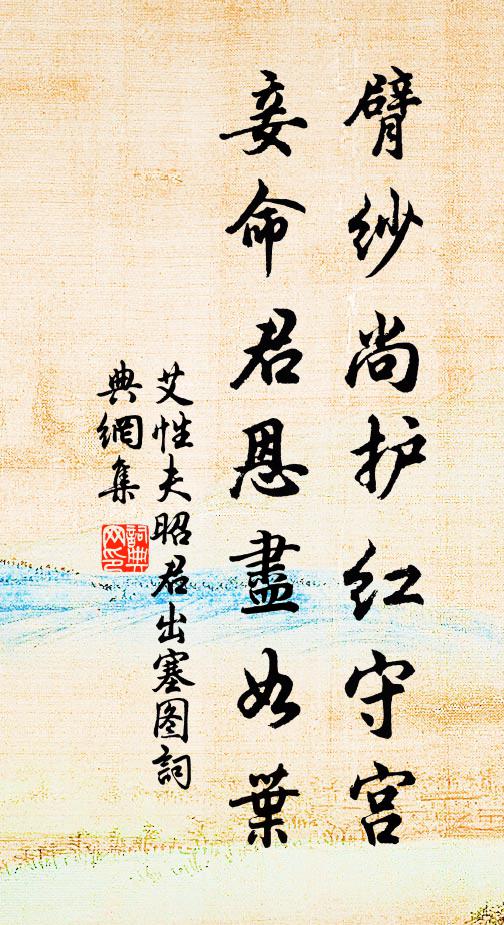 臂纱尚护红守宫
妾命君恩盡如葉
艾性夫昭君出塞图詞
典網集
詞典网印